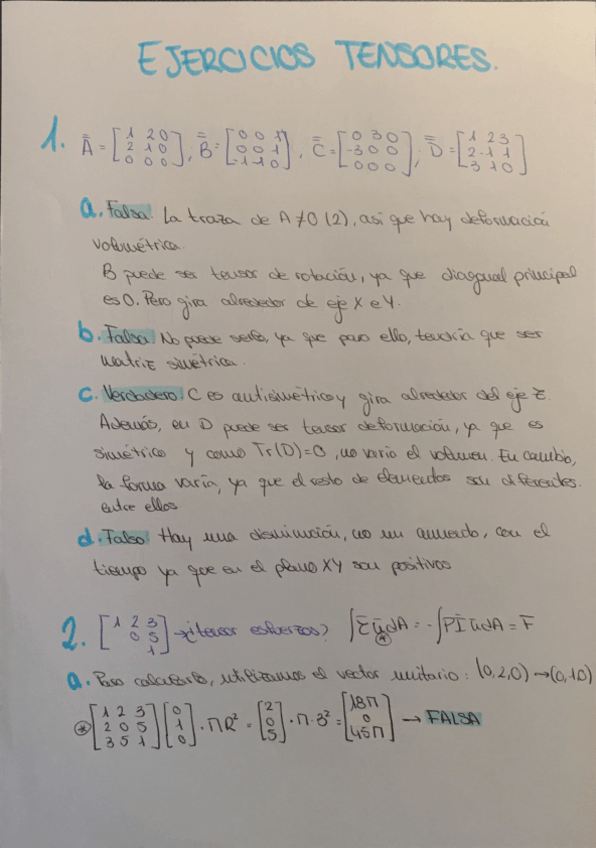 EJERCICIOS TENSORES.
1. A̿ = [1 2 0; 2 1 0; 0 0 0], B̿ = [0 0 1; 0 0 1; -1 -1 0], C̿ = [0 3 0; -3 0 0; 0 0 0], D̿ = [1 2 3; 2 -1 1; 3 1 0]
a. Falsa: La traza de A ≠ 0 (2), así que hay deformación
volumétrica.
B puede ser tensor de rotación, ya que diagonal principal
es 0. Pero gira alrededor de eje X e Y.
b. Falsa: No puede serlo, ya que para ello, tendría que ser
matriz simétrica.
c. Verdadero: C es antisimétrico y gira alrededor del eje Z.
Además, en D puede ser tensor deformación, ya que es
simétrico y como Tr(D)=0, no varía el volumen. En cambio,
la forma varía, ya que el resto de elementos son diferentes.
entre ellos
d. Falso: Hay una disminución, no un aumento, con el
tiempo ya que en el plano XY son positivos
2. [1 2 3; 0 5; 1] → ¿tensor esfuerzos? ∫Σ̿ u̅ dA = -∫P I̿ u̅ dA = F̅
a. Para calcularlo, utilizamos el vector unitario: (0,2,0) → (0,1,0)
⊛ [1 2 3; 2 0 5; 3 5 1] [0; 1; 0] · ΠR² = [2; 0; 5] · Π · 3² = [18Π; 0; 45Π] → FALSA